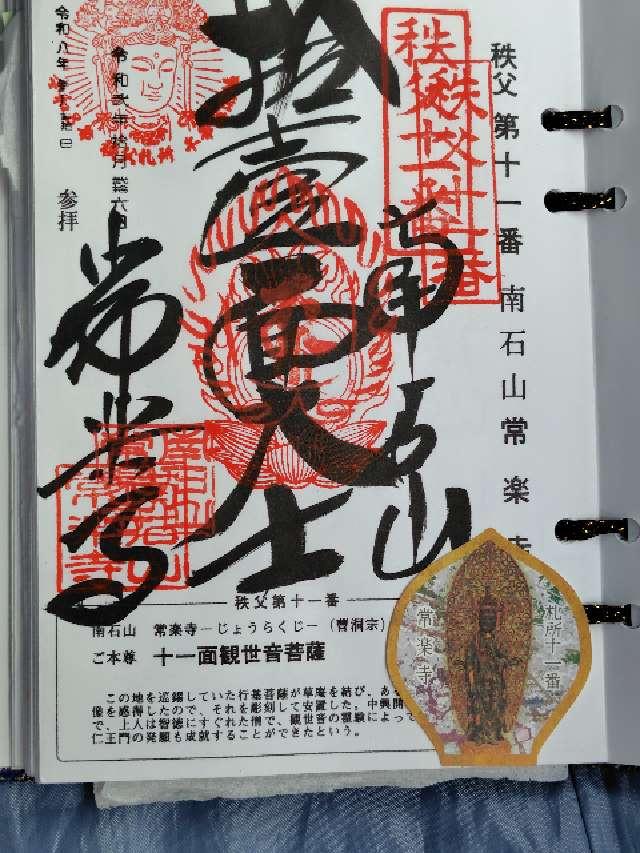 秩父 第十一番 南石山 常楽寺
秩父
第十一番
南石山
拾壹面大士
常楽寺
令和八年
参拝
秩父第十一番
南石山 常楽寺－じょうらくじ－（曹洞宗）
ご本尊 十一面観世音菩薩
この地を巡錫していた行基菩薩が草庵を結び、ある
像を感得したので、それを彫刻して安置した。中興開
で、上人は智徳にすぐれた僧で、観世音の霊験によって
仁王門の発願も成就することができたという。
札所十一番
常楽寺